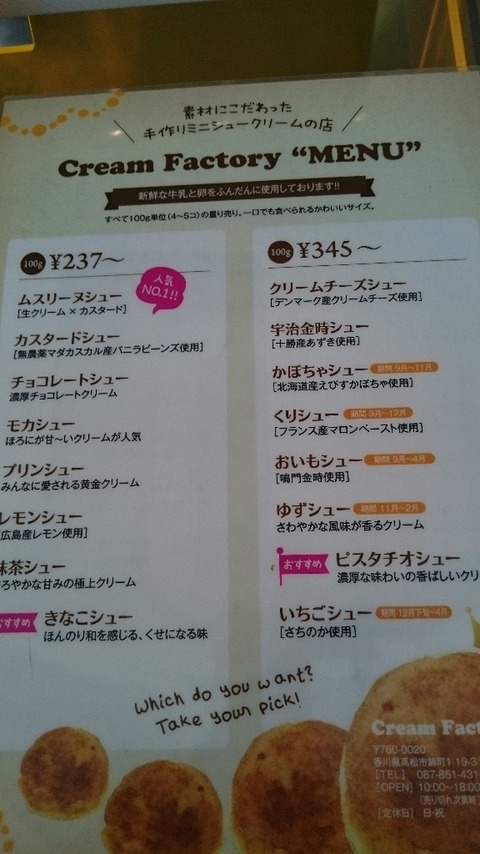 素材にこだわった
手作りミニシュークリームの店
Cream Factory “MENU”
新鮮な牛乳と卵をふんだんに使用しております!!
すべて100g単位(4〜5コ)の量り売り。一口でも食べられるかわいいサイズ。
100g ¥237〜
人気
NO.1!!
ムスリーヌシュー
[生クリーム × カスタード]
カスタードシュー
[無農薬マダカスカル産バニラビーンズ使用]
チョコレートシュー
濃厚チョコレートクリーム
モカシュー
ほろにが甘〜いクリームが人気
プリンシュー
みんなに愛される黄金クリーム
レモンシュー
広島産レモン使用]
抹茶シュー
ろやかな甘みの極上クリーム
おすすめ きなこシュー
ほんのり和を感じる、くせになる味
100g ¥345〜
クリームチーズシュー
[デンマーク産クリームチーズ使用]
宇治金時シュー
[十勝産あずき使用]
かぼちゃシュー 期間 9月〜11月
[北海道産えびすかぼちゃ使用]
くりシュー 期間 9月〜12月
[フランス産マロンペースト使用]
おいもシュー 期間 9月〜4月
[鳴門金時使用]
ゆずシュー 期間 11月〜2月
さわやかな風味が香るクリーム
おすすめ ピスタチオシュー
濃厚な味わいの香ばしいクリ
いちごシュー 期間 12月下旬〜4月
[さちのか使用]
Which do you want?
Take your pick!
Cream Fact
〒760-0020
香川県高松市錦町1-19-3
[TEL] 087-851-431
[OPEN] 10:00〜18:00
(売り切れ次第終
[定休日] 日・祝